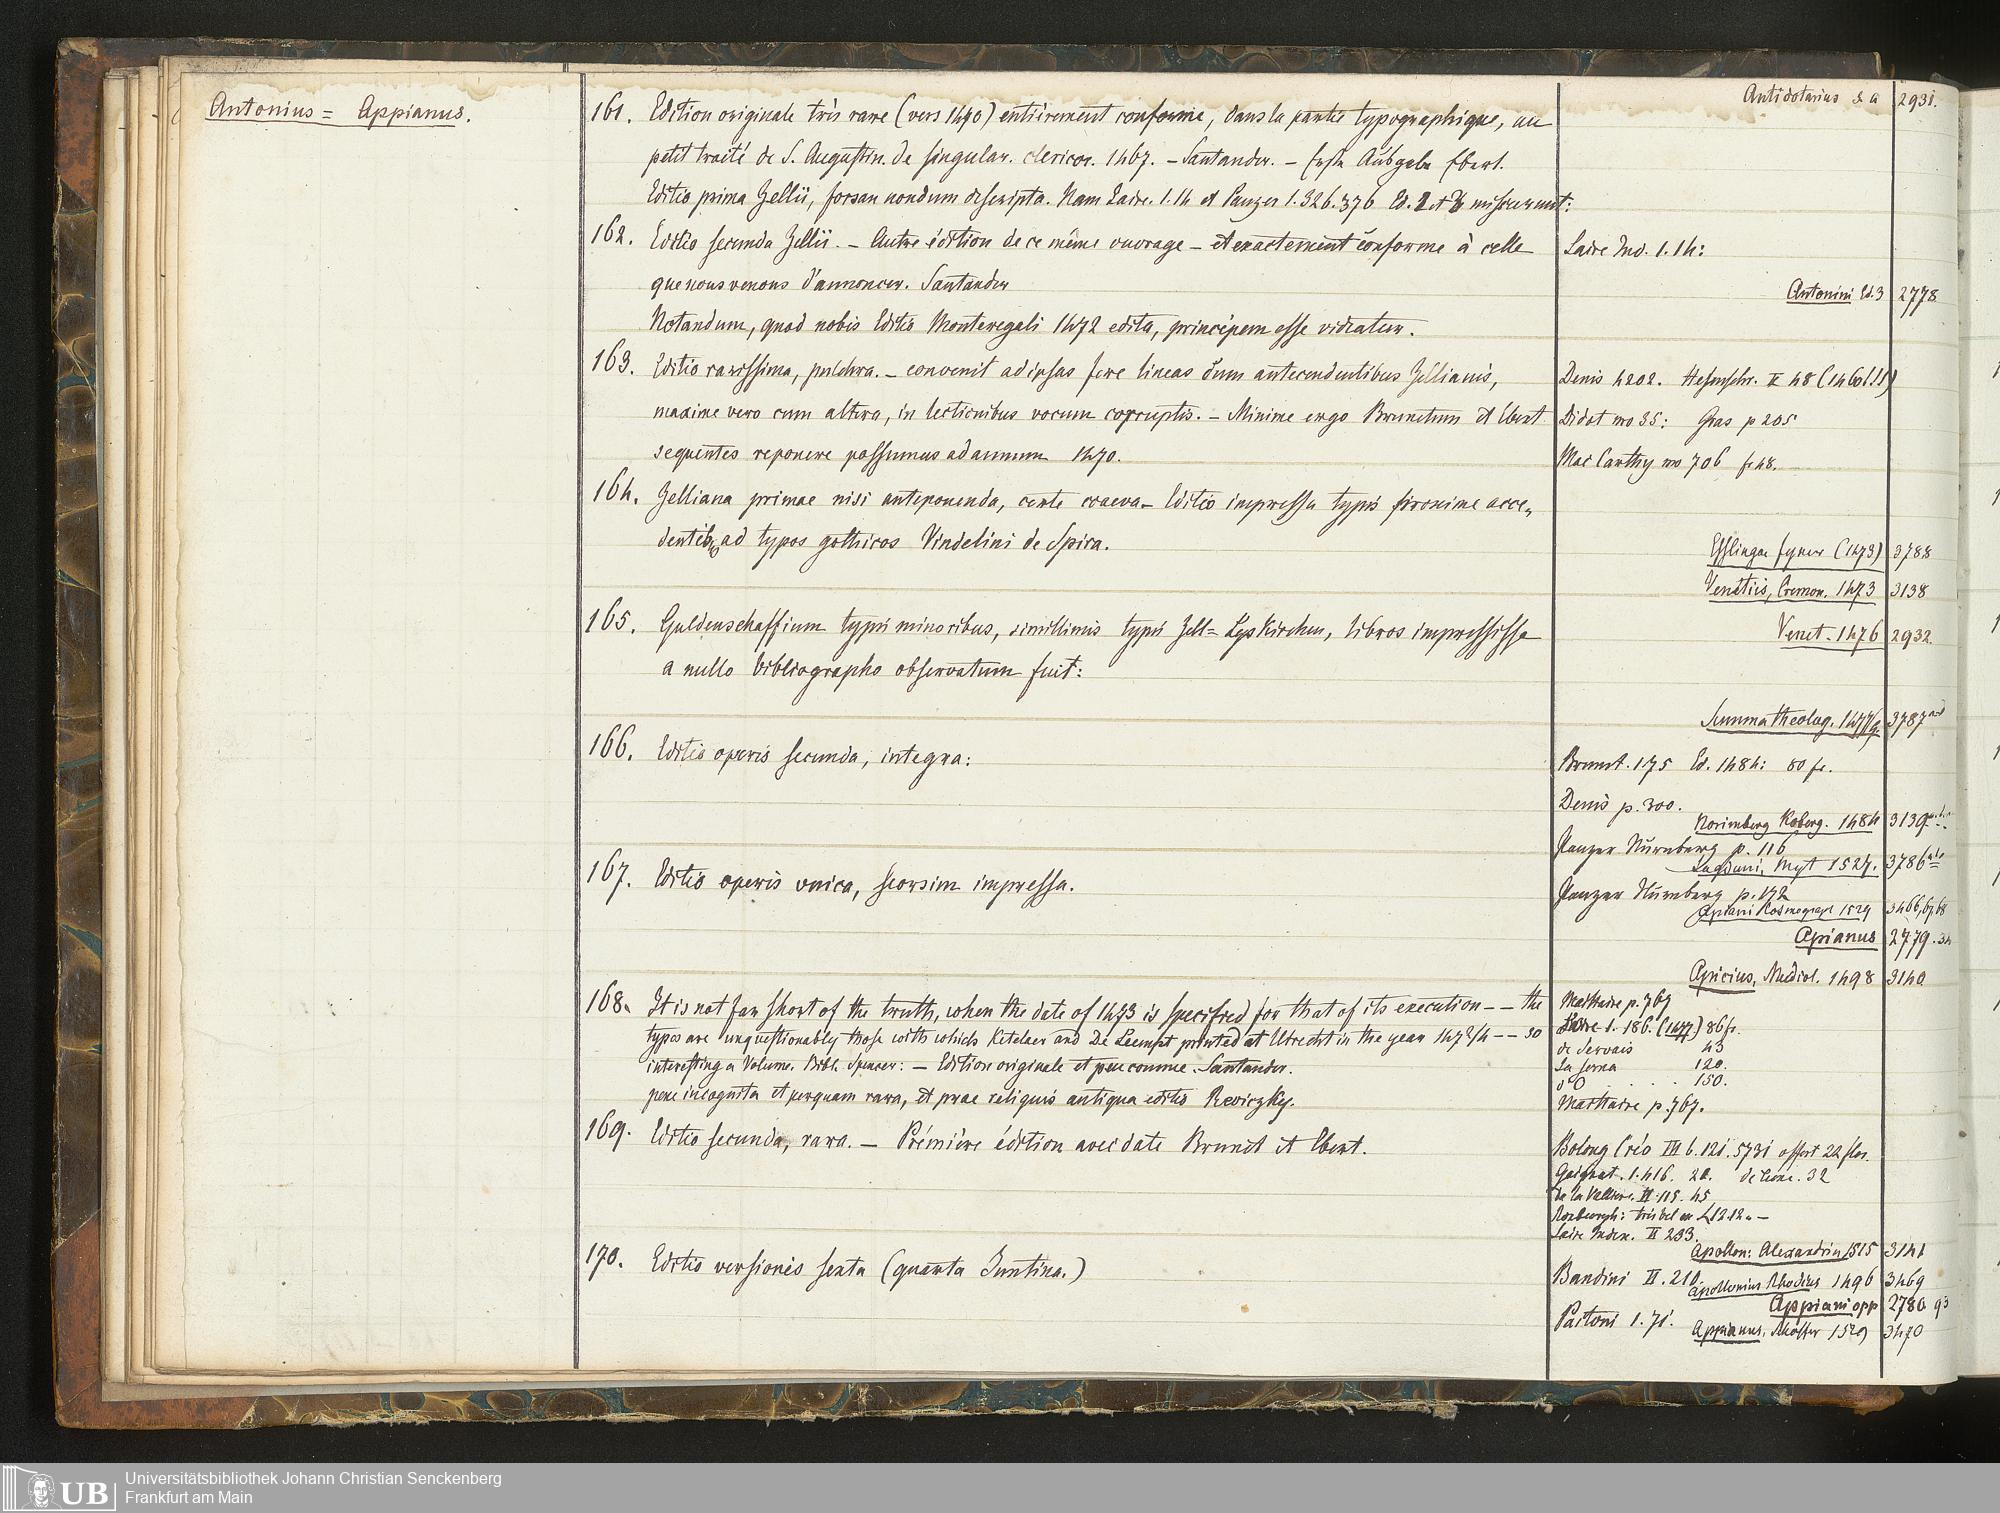 Antonius = Appianus.
161. Edition originale très rare (vers 1470) entièrement conforme, dans la partie typographique, au
petit traité de S. Augustin. de singular. clericor. 1467. – Santander. – Erste Ausgabe Ebert.
Editio prima Zellii, forsan nondum descripta. Nam Laire. 1.14 et Panzer 1.326.376 Ed. 2 et 3 miscuerunt:
162. Editio secunda Zellii. – Autre édition de ce même ouvrage – et exactement conforme à celle
que nous venons d'annoncer. Santander
Notandum, quod nobis Editio Monteregali 1472 edita, princeps esse videatur.
163. Editio rarissima, pulchra. – convenit ad ipsas fere lineas cum antecendentibus Zellianis,
maxime vero cum altera, in lectionibus vocum corruptis. – Minime ergo Brunetum et Ebert
sequentes reponere possumus ad annum 1470.
164. Zelliana primae nisi anteponenda, certe coaeva – Editio impressa typis proxime acce„
dentib; ad typos gothicos Vindelini de Spira.
165. Guldenschaffium typis minoribus, simillimis typis Zell = Lyskirchen, libros impressisse
a nullo bibliographo observatum fuit:
166. Editio operis secunda, integra:
167. Editio operis unica, seorsim impressa.
168. It is not far short of the truth, when the date of 1473 is specified for that of its execution – – the
types are unquestionably those with which Ketelaer and De Leempt printed at Utrecht in the year 1473/4 – – so
interesting a Volume. Bibl. Spencer: – Edition originale et peu connue. Santander.
pene incognita et perquam rara, et prae reliquis antiqua editio Reviczky.
169. Editio secunda, rara. – Première édition avec date Brunet et Ebert.
170. Editio versionis sexta (quarta Juntina.)
Antidotarius s. a 2931.
Laire Ind. 1.14:
Antonini Ed. 3 2778
Denis 4202.
Didot no 35: Gras p 205
Mac Carthy no 706 fr 48.
Esslingae Fyner (1473) 3788
Venetiis, Cremon. 1473 3138
Venet. 1476 2932.
Summa theolog. 1477 3787
Brunet. 1.75 Ed. 1484: 80 fr.
Denis p. 300.
Norimberg Koberg. 1484 3139
Panzer Nürnberg p. 116
Lugduni, Myt 1527. 3786
Panzer Nürnberg p. 172
Apiani Kosmograph 1529 3466,67,68
Apianus 2779.
Apicius, Mediol. 1498 3140
Maittaire p. 767
Laire 1. 186. (1477) 86 fr.
de Servais 43
La Serna 120.
dO . . . . 150.
Maittaire p. 767.
Bolong Crév III 6. 121. 5731 offert 22 flor.
Gaignat. 1.416. 20. de Lione. 32
de la Valliere. II. 115. 45
Roxburgh: très bel ex £ 12.12. –
Laire Index. II 233.
Apollon: Alexandrin 1515 3141
Bandini II. 210.
Apollonius Rhodius 1496 3469
Appiani opp 2780
Paitoni 1. 71.
Appianus, 1529 3470
UB
Universitätsbibliothek Johann Christian Senckenberg
Frankfurt am Main